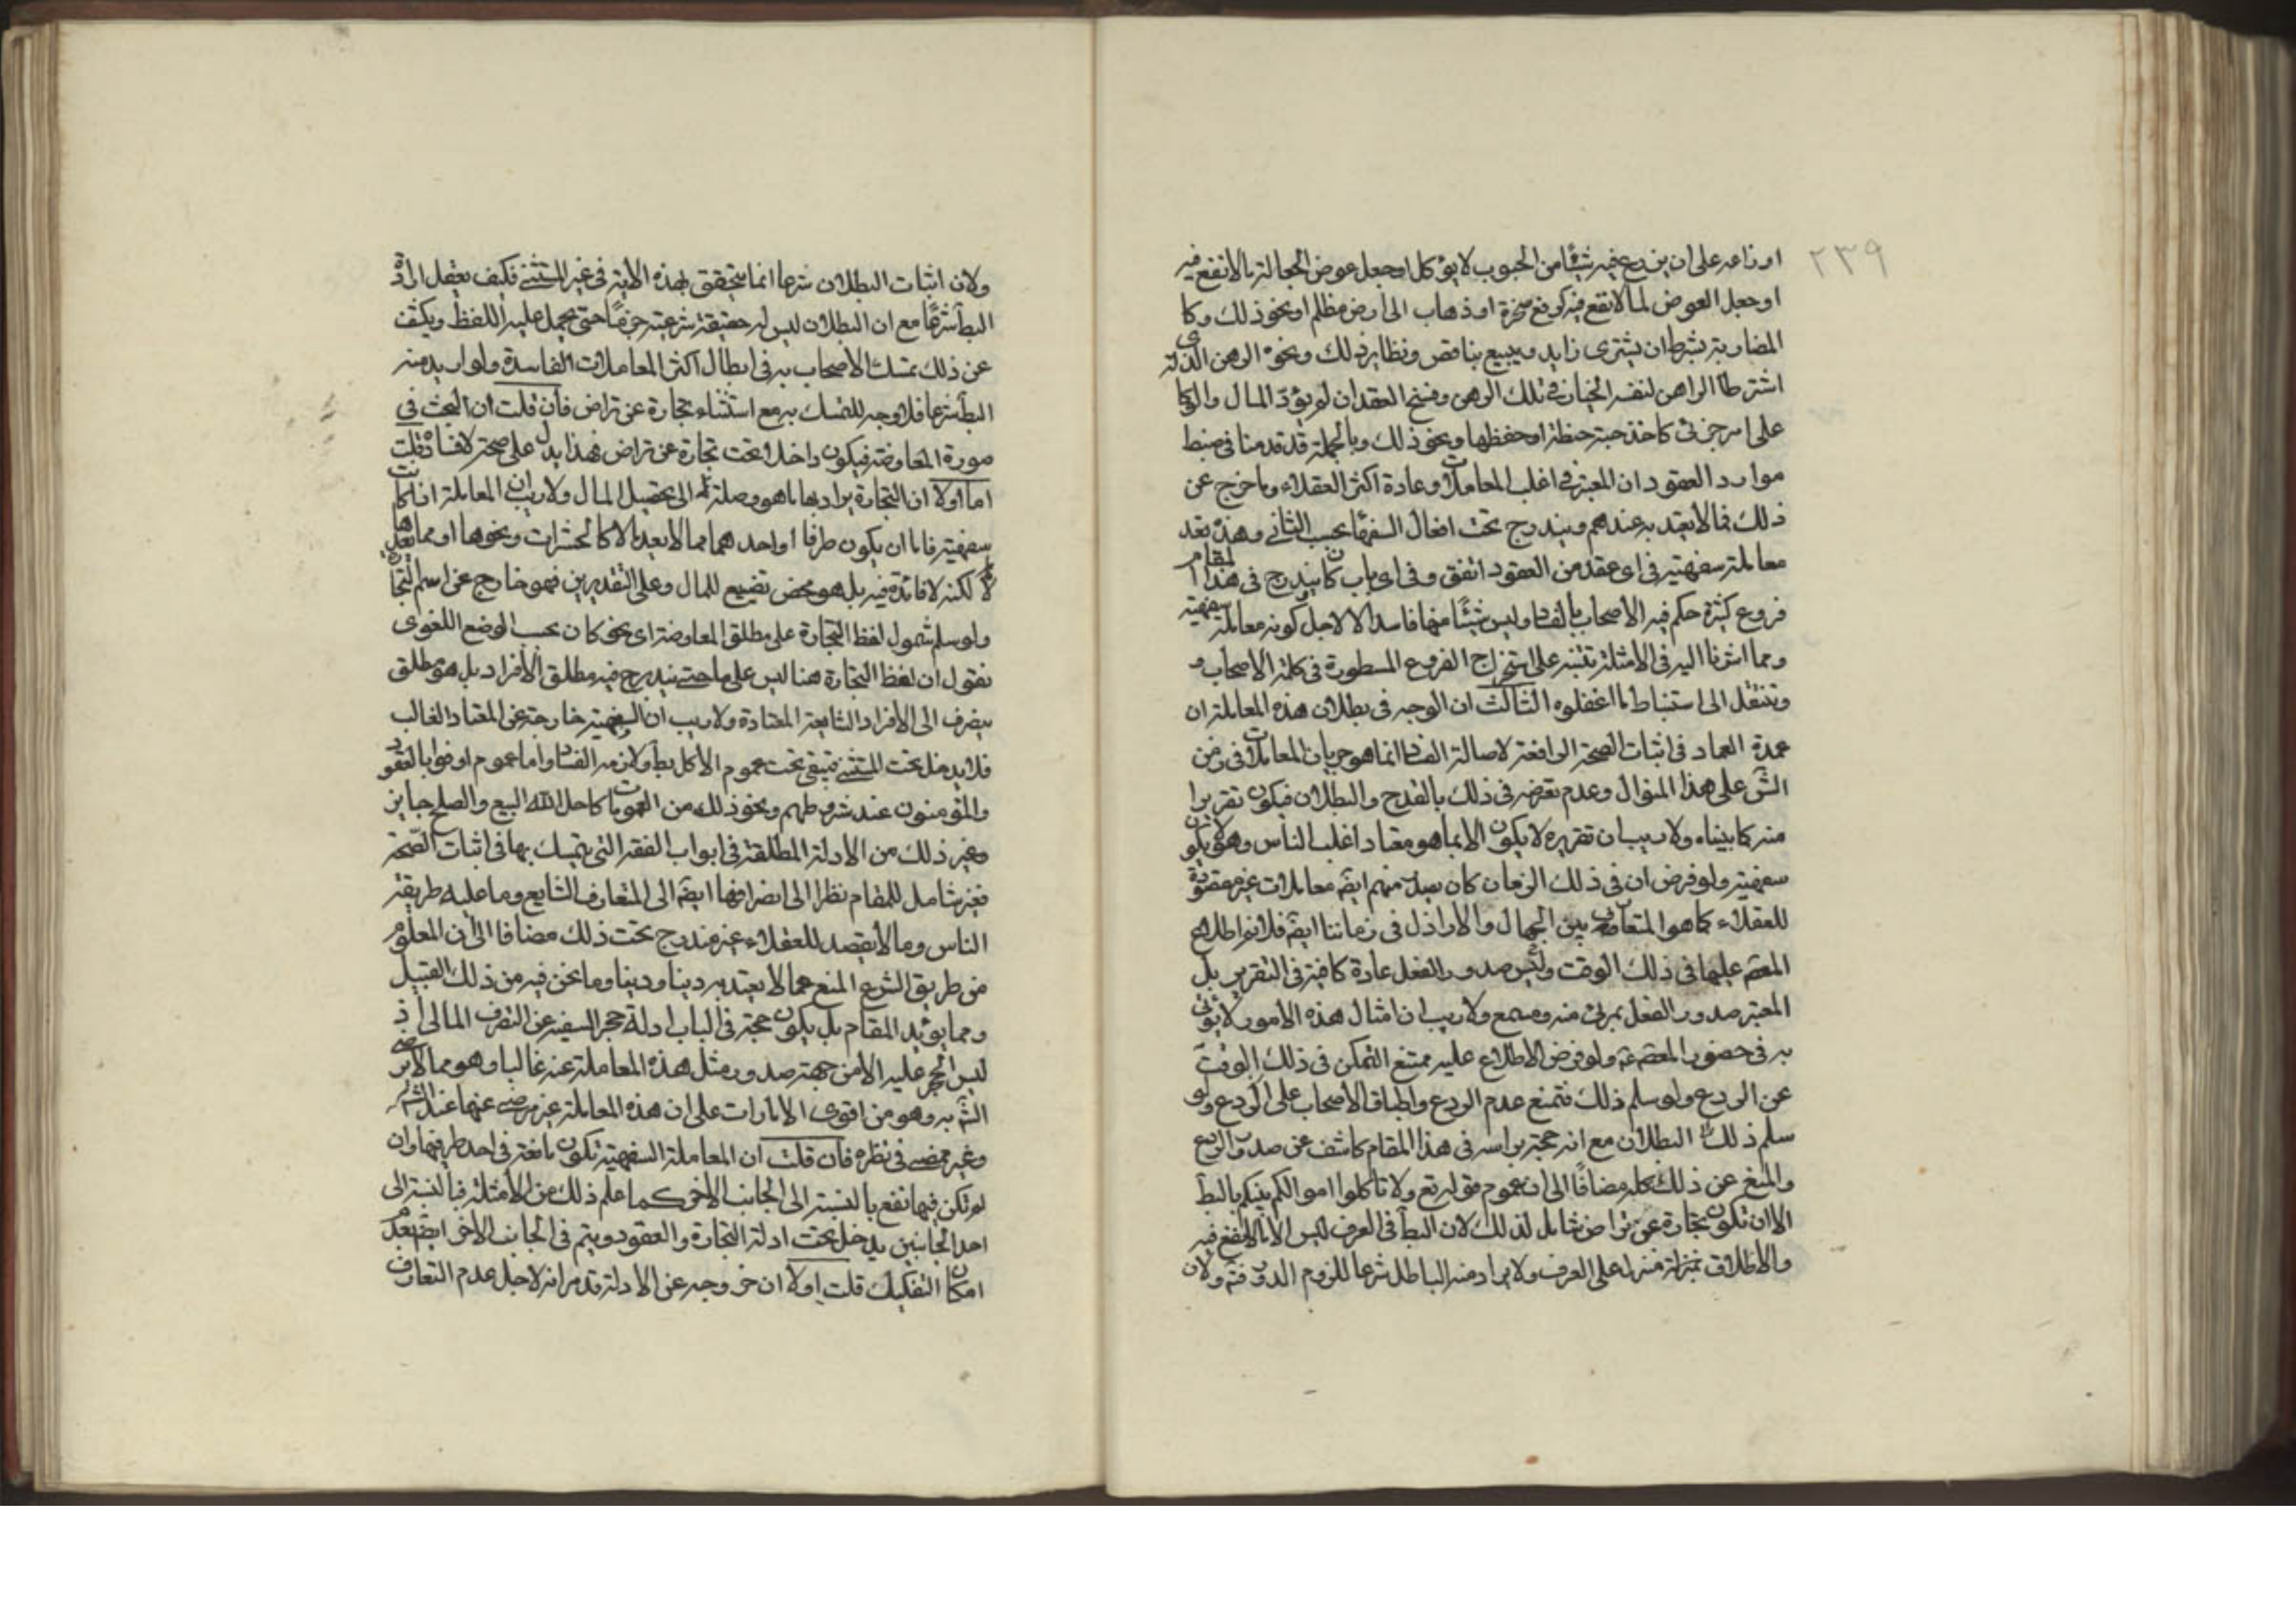 ٢٣٩
او زارعه على ان يزرع فيه شيئا من الحبوب لا يؤكل او جعل عوض الجعالة ما لا نفع فيه
او جعل العوض لما لا نفع فيه كرفع صخرة او ذهاب الى ارض مظلم او نحو ذلك وكا
المضاربة بشرط ان يشترى زايد ويبيع بناقص ونظاير ذلك ونحوه الرهن الذى
اشترط الراهن لنفسه الخيار فى تلك الرهن وفسخ العقد ان لم يؤد المال والوكا
على امر جزئى كاخذ حبة حنطة او حفظها ونحو ذلك وبالجملة قد قدمنا فى ضبط
موارد العقود ان المعتبر فى اغلب المعاملات وعادة اكثر العقلاء وما خرج عن
ذلك مما لا يعتد به عندهم ويندرج تحت افعال السفهاء بحسب الثانى وهذه تعد
معاملة سفهية فى اى عقد من العقود اتفق وفى اى باب كان يندرج فى هذا المقام
فروع كثيرة حكم فيه الاصحاب بالفساد وليس شيئا منها فاسدا الا لاجل كونه معاملة سفهية
ومما اشرنا اليه فى الامثلة تتنبه على استخراج الفروع المسطورة فى كلمة الاصحاب و
وتنتقل الى استنباط ما اغفلوه الثالث ان الوجه فى بطلان هذه المعاملة ان
عمدة العماد فى اثبات الصحة الرافعة لاصالة الفساد انما هو جريان المعاملات فى زمن
الش على هذا المنوال وعدم تعرضه فى ذلك بالقدح والبطلان فيكون تقريرا
منه كما بيناه ولا ريب ان تقريره لا يكون الا بما هو معتاد اغلب الناس وهو لا يكون
سفهية ولو فرض ان فى ذلك الزمان كان يصدر منهم ايضه معاملات غير مقصودة
للعقلاء كما هو المتعارف بين الجهال والاراذل فى زماننا ايضه فلا نم اطلاع
المعصم عليها فى ذلك الوقت وليس صدور الفعل عادة كافية فى التقرير بل
المعتبر صدور الفعل بمرئ منه ومسمع ولا ريب ان امثال هذه الامور لا يؤتى
به فى حضور المعصم عه ولو فرض الاطلاع عليه نمنع التمكن فى ذلك الوقت
عن الردع ولو سلم ذلك فنمنع عدم الردع واطباق الاصحاب على الردع ولو
سلم ذلك البطلان مع انه حجة براسه فى هذا المقام كاشف عن صدور الردع
والمنع عن ذلك كله مضافا الى ان عموم قوله تع ولا تاكلوا اموالكم بينكم بالبط
الا ان تكون تجارة عن تراض شامل لذلك لان البط فى العرف ليس الا ما لا نفع فيه
والاطلاق بمنزلة منزله على العرف ولا يراد منه الباطل شرعا للزوم الدور فته ولان
ولان اثبات البطلان شرعا انما يتحقق بهذه الاية فى غير المستثنى فكيف يعقل ارادة
البط شرعا مع ان البطلان ليس له حقيقة شرعية جزما حتى يحمل عليه اللفظ ويكشف
عن ذلك تمسك الاصحاب به فى ابطال اكثر المعاملات الفاسدة ولو اريد منه
البط شرعا فلا وجه للتمسك به مع استثناء تجارة عن تراض فان قلت ان البحث فى
صورة المعاوضة فيكون داخلا تحت تجارة عن تراض فهذا يدل على صحة لا فساده قلت
اما اولا ان التجارة يراد بها ما هو وصلة الى تحصيل المال ولا ريب ان المعاملة اذا كانت
سفهية فاما ان يكون طرفا او احدهما مما لا يعد مالا كالحشرات ونحوها او مما يعد
مالا لكنه لا فائدة فيه بل هو محض تضييع للمال وعلى التقديرين فهو خارج عن اسم التجارة
ولو سلم شمول لفظ التجارة على مطلق المعاوضة اى نحو كان بحسب الوضع اللغوى
نقول ان لفظ التجارة هنا ليس على ما حتى يندرج فيه مطلق الافراد بل هو مطلق
ينصرف الى الافراد الشايعة المعتادة ولا ريب ان السفهية خارجة عن المعتاد الغالب
فلا يدخل تحت المستثنى فتبقى تحت عموم الاكل بط ولازمه الفساد واما عموم اوفوا بالعقود
والمؤمنون عند شروطهم ونحو ذلك من العمومات كاحل الله البيع والصلح جايز
وغير ذلك من الادلة المطلقة فى ابواب الفقه التى يتمسك بها فى اثبات الصحة
فغير شامل للمقام نظرا الى انصرافها ايضه الى المتعارف الشايع وما عليه طريقة
الناس وما لا يقصد للعقلاء غير مندرج تحت ذلك مضافا الى ان المعلوم
من طريق الشرع المنع عما لا يعتد به دينا ودنيا وما نحن فيه من ذلك القبيل
ومما يؤيد المقام بل يكون حجة فى الباب ادلة حجر السفيه عن التصرف المالى اذ
ليس الحجر عليه الا من جهة صدور مثل هذه المعاملة عنه غالبا وهو مما لا يرضى
الش به وهو من اقوى الامارات على ان هذه المعاملة غير مرضى عنها عند الش
وغير ممضى فى نظره فان قلت ان المعاملة السفهية تكون نافعة فى احد طرفيها وان
لم تكن فيها نفع بالنسبة الى الجانب الاخر كما علم ذلك من الامثلة فبالنسبة الى
احد الجانبين يدخل تحت ادلة التجارة والعقود ويتم فى الجانب الاخر ايضه بعدم
امكان التفكيك قلت اولا ان خروجه عن الادلة قد مر انه لاجل عدم التعارف